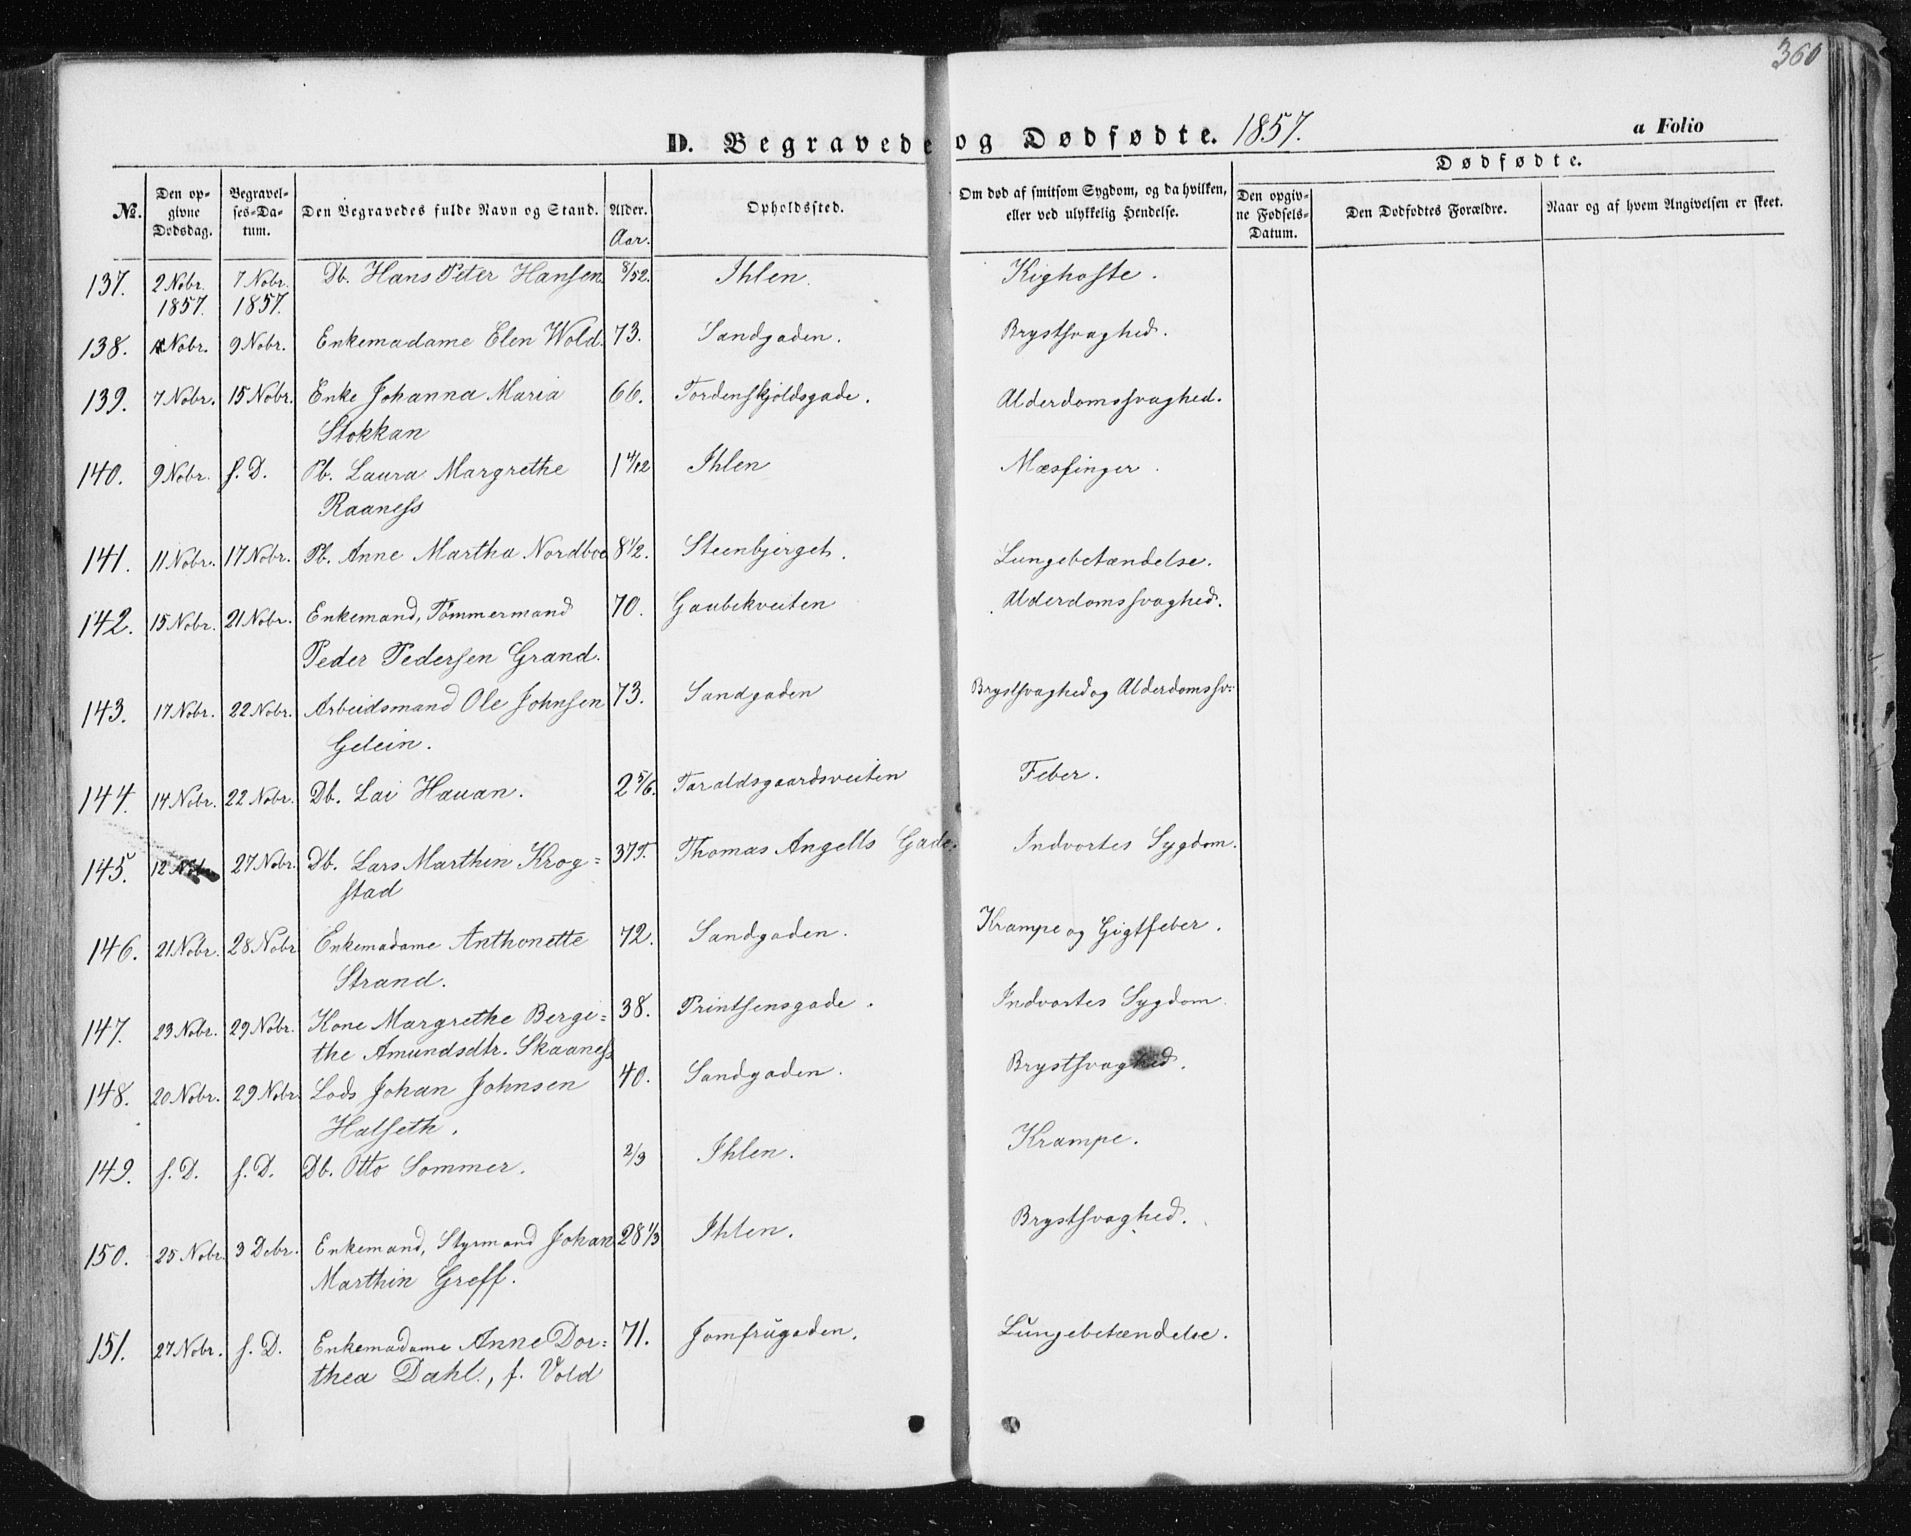 360
D. Begravede og Dødfødte. 1857. a Folio
Dødfødte.
No. Den opgivne Dødsdag. Begravelses-Datum. Den Begravedes fulde Navn og Stand. Alder. Opholdssted. Om død af smitsom Sygdom, og da hvilken, eller ved ulykkelig Hendelse. Den opgivne Fødsels-Datum. Den Dødfødtes Forældre. Naar og af hvem Angivelsen er skeet.
Aar.
137. 2 Nobr. 7 Nobr. Db. Hans Peter Hansen 8/52. Ihlen. Kighoste.
1857. 1857.
138. Nobr. 9 Nobr. Enkemadame Elen Wold. 73. Sandgaden. Brystsvaghed.
139. 7 Nobr. 15 Nobr. Enke Johanna Maria 66. Tordenskjoldsgade. Alderdomssvaghed.
Stokkan
140. 9 Nobr. f. D. Pb. Laura Margrethe 1 4/12 Ihlen Mæsfinger.
Raaness
141. 11 Nobr. 17 Nobr. Pb. Anne Martha Nordboe 8 1/2. Steenbjerget. Lungebetændelse.
142. 15 Nobr. 21 Nobr. Enkemand, Tømmermand 70. Gaubekveiten Alderdomssvaghed.
Peder Pedersen Grand.
143. 17 Nobr. 22 Nobr. Arbeidsmand Ole Johnsen 73. Sandgaden Brystsvaghed og Alderdomssv:
Gelein.
144. 14 Nobr. 22 Nobr. Db. Lai Hauan. 2 5/6. Taraldsgaardsveiten Feber.
145. 12 27 Nobr. Db. Lars Marthin Krog= 37 Thomas Angells Gade. Indvortes Sygdom.
stad
146. 21 Nobr. 28 Nobr Enkemadame Anthonette 72. Sandgaden. Krampe og Gigtfeber.
Strand.
147. 23 Nobr. 29 Nobr. Kone Margrethe Bergi= 38. Printsensgade. Indvortes Sygdom.
the Amundsdtr. Skaaness
148. 20 Nobr. 29 Nobr. Lods Johan Johnsen 40. Sandgaden. Brystsvaghed.
Halseth.
149. f. D. f. D. Db. Otto Sommer. 2/3 Ihlen. Krampe.
150. 25 Nobr. 3 Debr. Enkemand, Styrmand Johan 28 1/3 Ihlen. Brystsvaghed.
Marthin Greff.
151. 27 Nobr. f. D. Enkemadame Anne Dor= 71. Jomfrugaden. Lungebetændelse.
thea Dahl., f. Vold